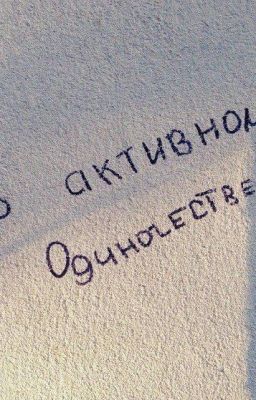 о активном
Одиночестве